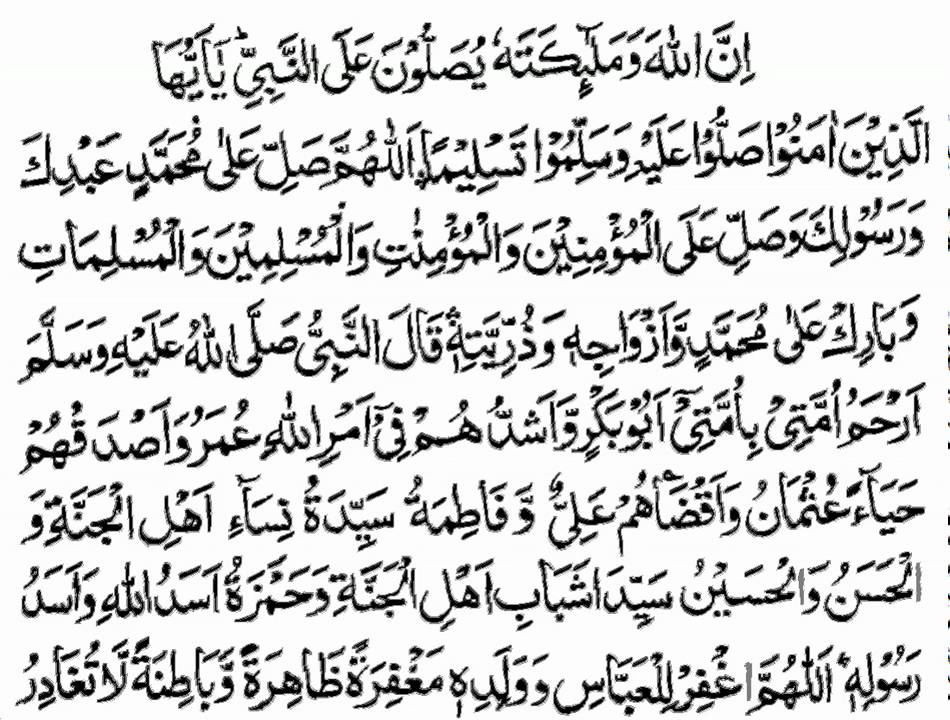 اِنَّ اللهَ وَمَلٰٓئِكَتَهٗ يُصَلُّوْنَ عَلَى النَّبِىِّ ؕ يٰۤاَيُّهَا
الَّذِيْنَ اٰمَنُوْا صَلُّوْا عَلَيْهِ وَسَلِّمُوْا تَسْلِيْمًا اَللّٰهُمَّ صَلِّ عَلٰى مُحَمَّدٍ عَبْدِكَ
وَرَسُوْلِكَ وَصَلِّ عَلَى الْمُؤْمِنِيْنَ وَالْمُؤْمِنٰتِ وَالْمُسْلِمِيْنَ وَالْمُسْلِمَاتِ
وَبَارِكْ عَلٰى مُحَمَّدٍ وَّاَزْوَاجِهٖ وَذُرِّيَّتِهٖ قَالَ النَّبِىُّ صَلَّى اللهُ عَلَيْهِ وَسَلَّمَ
اَرْحَمُ اُمَّتِىْ بِاُمَّتِىْٓ اَبُوْبَكْرٍ وَّاَشَدُّهُمْ فِىْٓ اَمْرِ اللهِ عُمَرُ وَاَصْدَقُهُمْ
حَيَآءً عُثْمَانُ وَاَقْضَاهُمْ عَلِىٌّ وَّفَاطِمَةُ سَيِّدَةُ نِسَآءِ اَهْلِ الْجَنَّةِ وَ
الْحَسَنُ وَالْحُسَيْنُ سَيِّدَا شَبَابِ اَهْلِ الْجَنَّةِ وَحَمْزَةُ اَسَدُ اللهِ وَاَسَدُ
رَسُوْلِهٖ ؕ اَللّٰهُمَّ اغْفِرْ لِلْعَبَّاسِ وَوَلَدِهٖ مَغْفِرَةً ظَاهِرَةً وَّبَاطِنَةً لَّا تُغَادِرُ